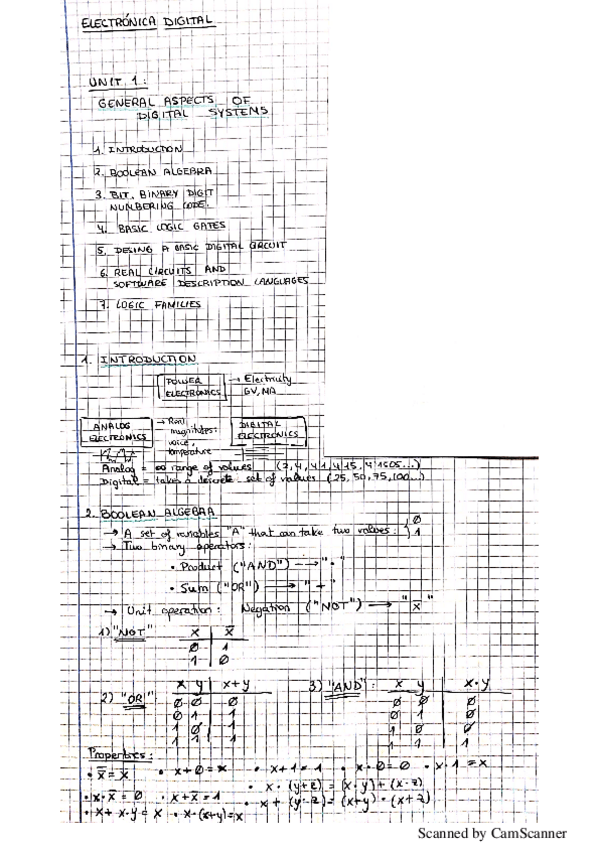 ELECTRÓNICA DIGITAL
UNIT 1:
GENERAL ASPECTS OF
DIGITAL SYSTEMS
1. INTRODUCTION
2. BOOLEAN ALGEBRA
3. BIT. BINARY DIGIT
NUMBERING CODE.
4. BASIC LOGIC GATES
5. DESING A BASIC DIGITAL CIRCUIT
6. REAL CIRCUITS AND
SOFTWARE DESCRIPTION LANGUAGES
7. LOGIC FAMILIES
1. INTRODUCTION
POWER ELECTRONICS → Electricity
ANALOG ELECTRONICS → Real magnitudes: voice, temperature
DIGITAL ELECTRONICS
Analog = ∞ range of values
Digital = takes a discrete set of values (25, 50, 75, 100...)
2. BOOLEAN ALGEBRA
→ A set of variables "A" that can take two values: 0 1
→ Two binary operators:
• Product ("AND") → "·"
• Sum ("OR") → "+"
→ Unit operation: Negation ("NOT") → "x̅"
1) "NOT" x x̅
0 1
1 0
2) "OR" x y x+y
0 0 0
0 1 1
1 0 1
1 1 1
3) "AND": x y x·y
0 0 0
0 1 0
1 0 0
1 1 1
Properties:
• x̿ = x • x+0=x • x+1=1 • x·0=0 • x·1=x
• x·x̅=0 • x+x̅=1 • x·(y+z)=(x·y)+(x·z)
• x+(y·z)=(x+y)·(x+z)
• x+x·y=x • x·(x+y)=x
Scanned by CamScanner